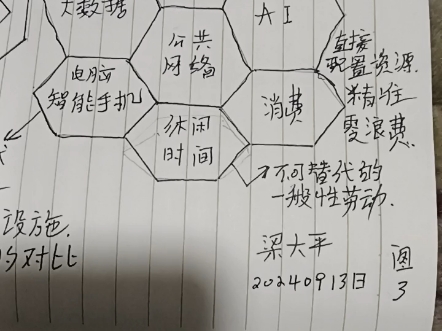 大数据
AI
公共
网络
直接
配置资源.
精准
零浪费.
电脑
智能手机
消费
休闲
时间
不可替代的
一般性劳动.
设施.
的对比
梁大平
20240913日
图
3